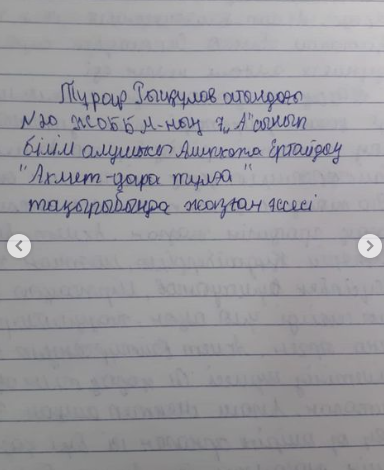 Тұрар Рысқұлов атындағы
№20 ЖОББМ-ның 7 "А" сынып
білім алушысы Ертайдың
"Ахмет-дара тұлға"
тақырыбында жазған эссесі